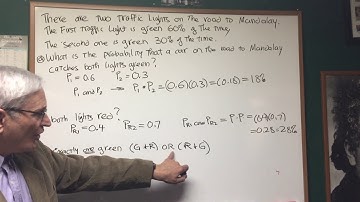 There are two traffic lights on the road to Mandalay.
The first traffic light is green 60% of the time,
The second one is green 30% of the time.
What is the probability that a car on the road to Mandalay
catches both lights green?
P₁ = 0.6 P₂ = 0.3
P₁ and P₂ → P₁·P₂ = (0.6)(0.3) = (0.18) = 18%
both lights red?
P_R1 = 0.4 P_R2 = 0.7 = P₁·P₂ = (0.4)(0.7)
= 0.28 = 28%
one green (G+R) OR (R+G)